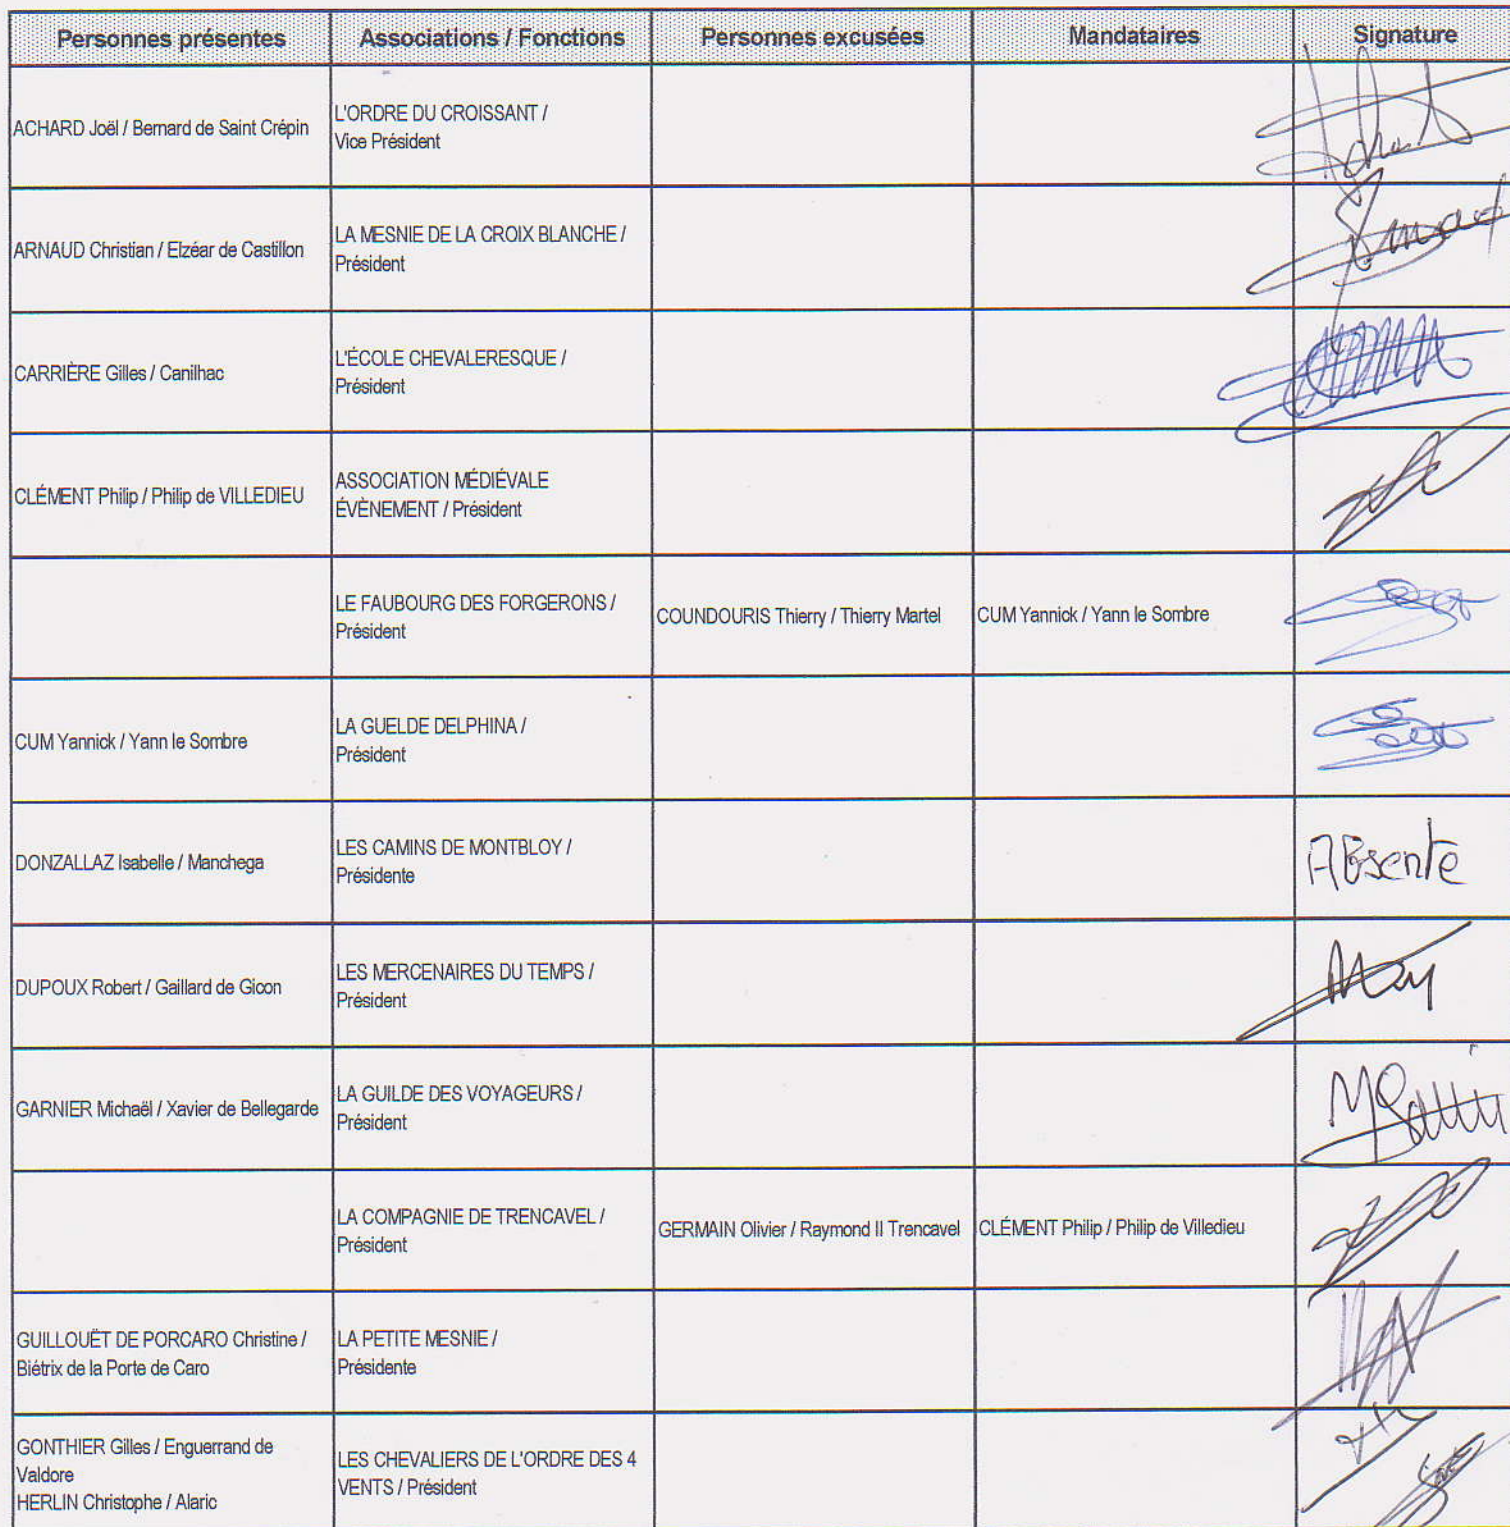 Personnes présentes Associations / Fonctions Personnes excusées Mandataires Signature
ACHARD Joël / Bernard de Saint Crépin
L'ORDRE DU CROISSANT /
Vice Président
ARNAUD Christian / Elzéar de Castillon
LA MESNIE DE LA CROIX BLANCHE /
Président
CARRIÈRE Gilles / Canilhac
L'ÉCOLE CHEVALERESQUE /
Président
CLÉMENT Philip / Philip de VILLEDIEU
ASSOCIATION MÉDIÉVALE
ÉVÈNEMENT / Président
LE FAUBOURG DES FORGERONS /
Président
COUNDOURIS Thierry / Thierry Martel
CUM Yannick / Yann le Sombre
CUM Yannick / Yann le Sombre
LA GUELDE DELPHINA /
Président
DONZALLAZ Isabelle / Manchega
LES CAMINS DE MONTBLOY /
Présidente
ABsente
DUPOUX Robert / Gaillard de Gicon
LES MERCENAIRES DU TEMPS /
Président
GARNIER Michaël / Xavier de Bellegarde
LA GUILDE DES VOYAGEURS /
Président
LA COMPAGNIE DE TRENCAVEL /
Président
GERMAIN Olivier / Raymond II Trencavel
CLÉMENT Philip / Philip de Villedieu
GUILLOUËT DE PORCARO Christine /
Biétrix de la Porte de Caro
LA PETITE MESNIE /
Présidente
GONTHIER Gilles / Enguerrand de
Valdore
HERLIN Christophe / Alaric
LES CHEVALIERS DE L'ORDRE DES 4
VENTS / Président